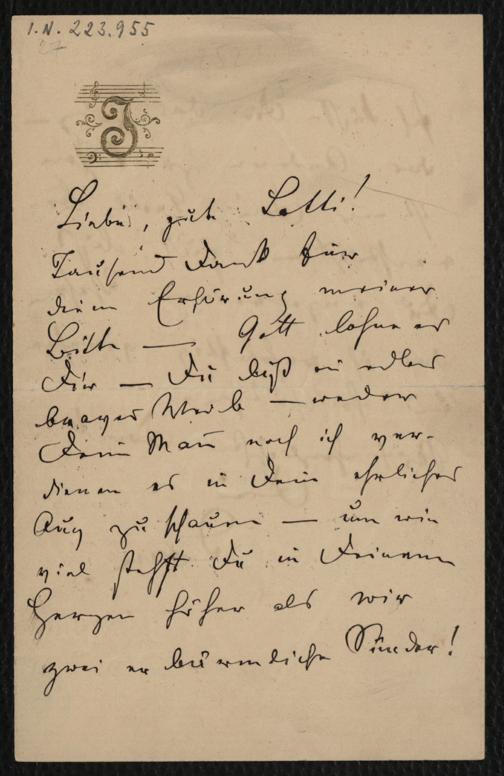 I.N. 223.955
J
Liebe, gute Lotti!
Tausend Dank für
deine Erhörung meiner
Bitte — Gott lohne es
Dir — Du bist ein edles
braves Weib — weder
Dein Mann noch ich ver-
dienen es in Dein ehrliches
Aug zu schauen — um wie
viel stehst Du in Deinem
Herzen höher als wir
zwei erbärmliche Sünder!